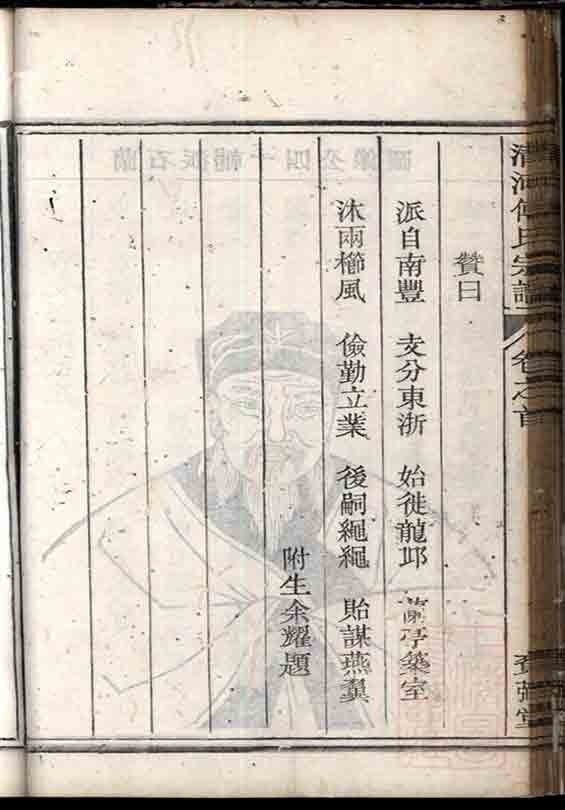 清河傅氏宗譜 卷之首 堂
贊曰
派自南豐 支分東浙 始徙龍邛 蘭亭築室
沐雨櫛風 儉勤立業 後嗣繩繩 貽謀燕翼
附生余耀題